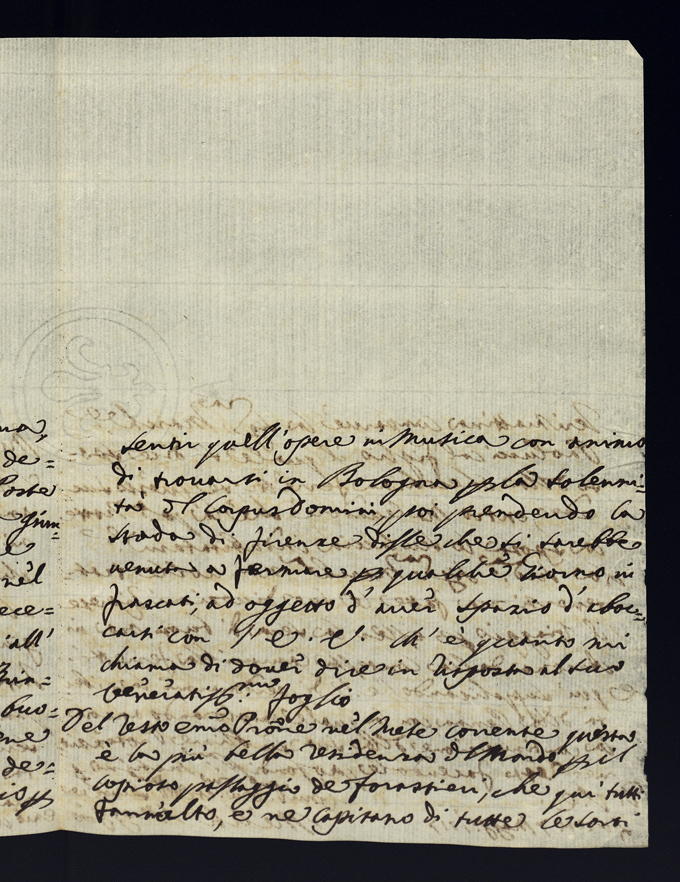 ma,
de=
Poste
Giun=
e
nel
ece=
all'
Prin=
buo=
ene
de=
sentir quell'opere in Musica con animo
di trovarsi in Bologna p la solenni=
tà del Corpus Domini, poi prendendo la
strada di firenze disse che si sarebbe
venuta a fermare p qualche Giorno in
frascati, ad oggetto d'aver spazio d'aboc=
carsi con V. E. ch'è quanto mi
chiama di dover dire in risposta al suo
veneratiss.mo foglio
Del resto em.o Prone nel Mese corrente questa
è la più bella residenza del Mondo p il
copioso passaggio de forastieri, che qui tutti
fann'alto, e ne capitano di tutte le sorti